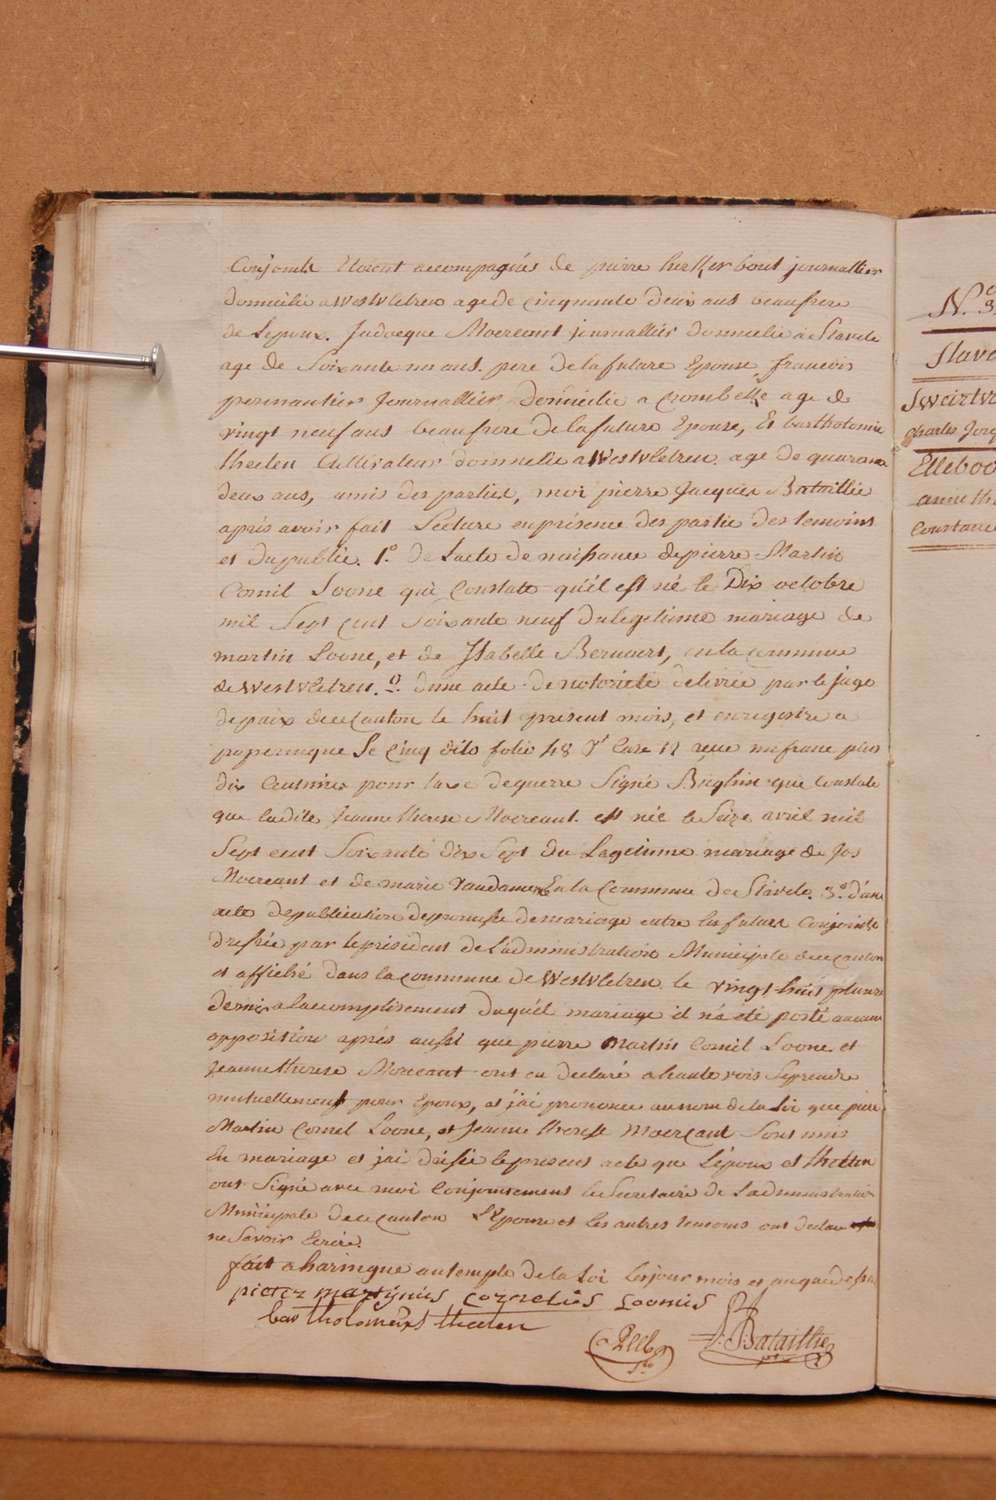 Conjoint Etoient accompagnés de pierre herkerbout journallier
domicilié a Westvletren age de cinquante deux ans beaufrere
de L'epoux. Judocque Moereant journallier domicilie a Stavele
age de Soixante un ans. pere de la future Epouse, francois
permantier Journallier domicilie a Crombeke age de
vingt neuf ans beaufrere de la future Epouse, Et bartholomie
theeten Cultivateur domicilie a Westvletren age de quarante
deux ans, amis des parties, moi pierre Jacques Bataillie
apres avoir fait Lecture en présence des partie des temoins
et du publie. 1.º de L'acte de naissance de pierre Martin
Cornil Loone qui Constate qu'il est né le Dix octobre
mil Sept cent Soixante neuf du legetisme mariage de
martin Loone, et de Isabelle Beruaert, en la commune
de Westvletren. 2.º d'une acte de notorieté delivrée par le juge
de paix de ce Canton le huit present mois, et enregistre a
poperingue le Cinq dito folio 48 Vº Case 11 reçue un franc plus
dix Centimes pour taxe de guerre Signé Brighin que Constate
que la dite Jeanne therese Moereant est née le Seize avril mil
Sept cent Soixante dix Sept du Legetisme mariage de Jos
Moereant et de marie Vandamen En la Commune de Stavele. 3.º d'une
acte de publication de promesse de mariage entre les futurs Conjoints
dressée par le président de L'administration Municipale de ce canton
et affiché dans la commune de Westvletren le vingt-huit pluviose
dernier a l'acomplissement duquél mariage il n'a été porté aucune
opposition aprés aussi que pierre Martin Cornil Loone et
Jeanne therese Moereant ont eu declaré a haute vois Seprendre
mutuellement pour Epoux, et j'ai prononcé au nom de la Loi que pierre
Martin Cornil Loone, et Jeanne therese Moereant Sont unis
En mariage et j'ai dressée le present acte que L'époux et theeten
ont Signé avec moi Conjointement le Secretaire de L'administration
Municipale de ce Canton L'Epouse et les autres temoins ont declaré
ne Savoir Ecrire.
fait a haringue au temple de la Loi les jour mois et an que dessus
pieter martynus cornelius Loonis
bartholomeus theeten
P. J. Bataillie
N.º 3
Stave
Sweirtva
Charles Josep
Elleboo
anne th
Constance